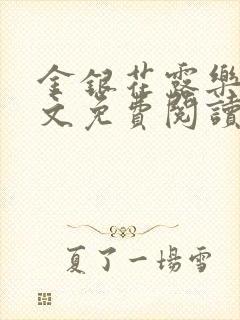 金銀花露樂
文免費閱讀
夏了一場雪